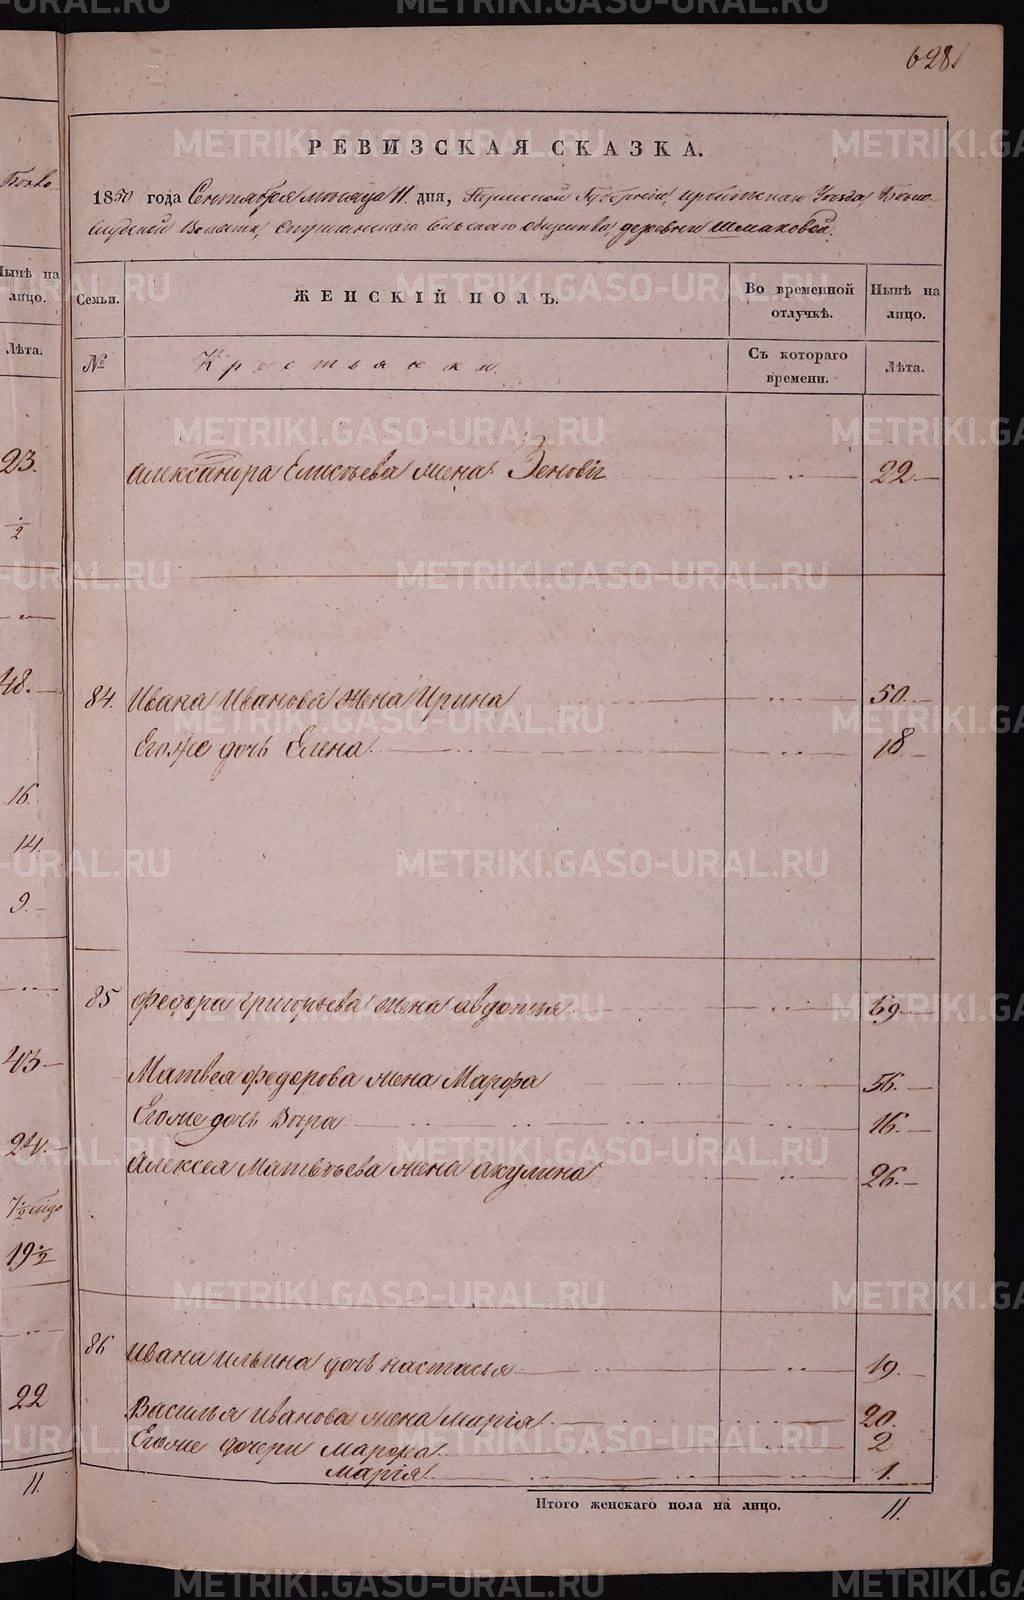 628
РЕВИЗСКАЯ СКАЗКА.
1850 года Сентября месяца 11 дня, Пермской Губернии, Ирбитскаго Уезда,
Волости, Сельскаго общества, деревни Шмаковой.
Бово
Нынѣ на лицо.
Семьи.
ЖЕНСКІЙ ПОЛЪ.
Во временной отлучкѣ.
Нынѣ на лицо.
Лѣта.
№
Крестьянки.
Съ котораго времени.
Лѣта.
23. Александра Елисѣева жена Зеновія 22
1/2
48. 84. Ивана Иванова жена Ирина 50
Егоже дочь Елена 18
16.
14.
9.
85 Федора Григорьева жена Авдотья 69
43 Матвея Федорова жена Марфа 56
Егоже дочь Вѣра 16
24. Алексея Матвѣева жена Акулина 26
19 1/2
86 Ивана Ильина дочь Настасья 19
22 Василья Иванова жена Марія 20
Егоже дочери Марфа 2
Марія 1
11. Итого женскаго пола на лицо. 11.
METRIKI.GASO-URAL.RU